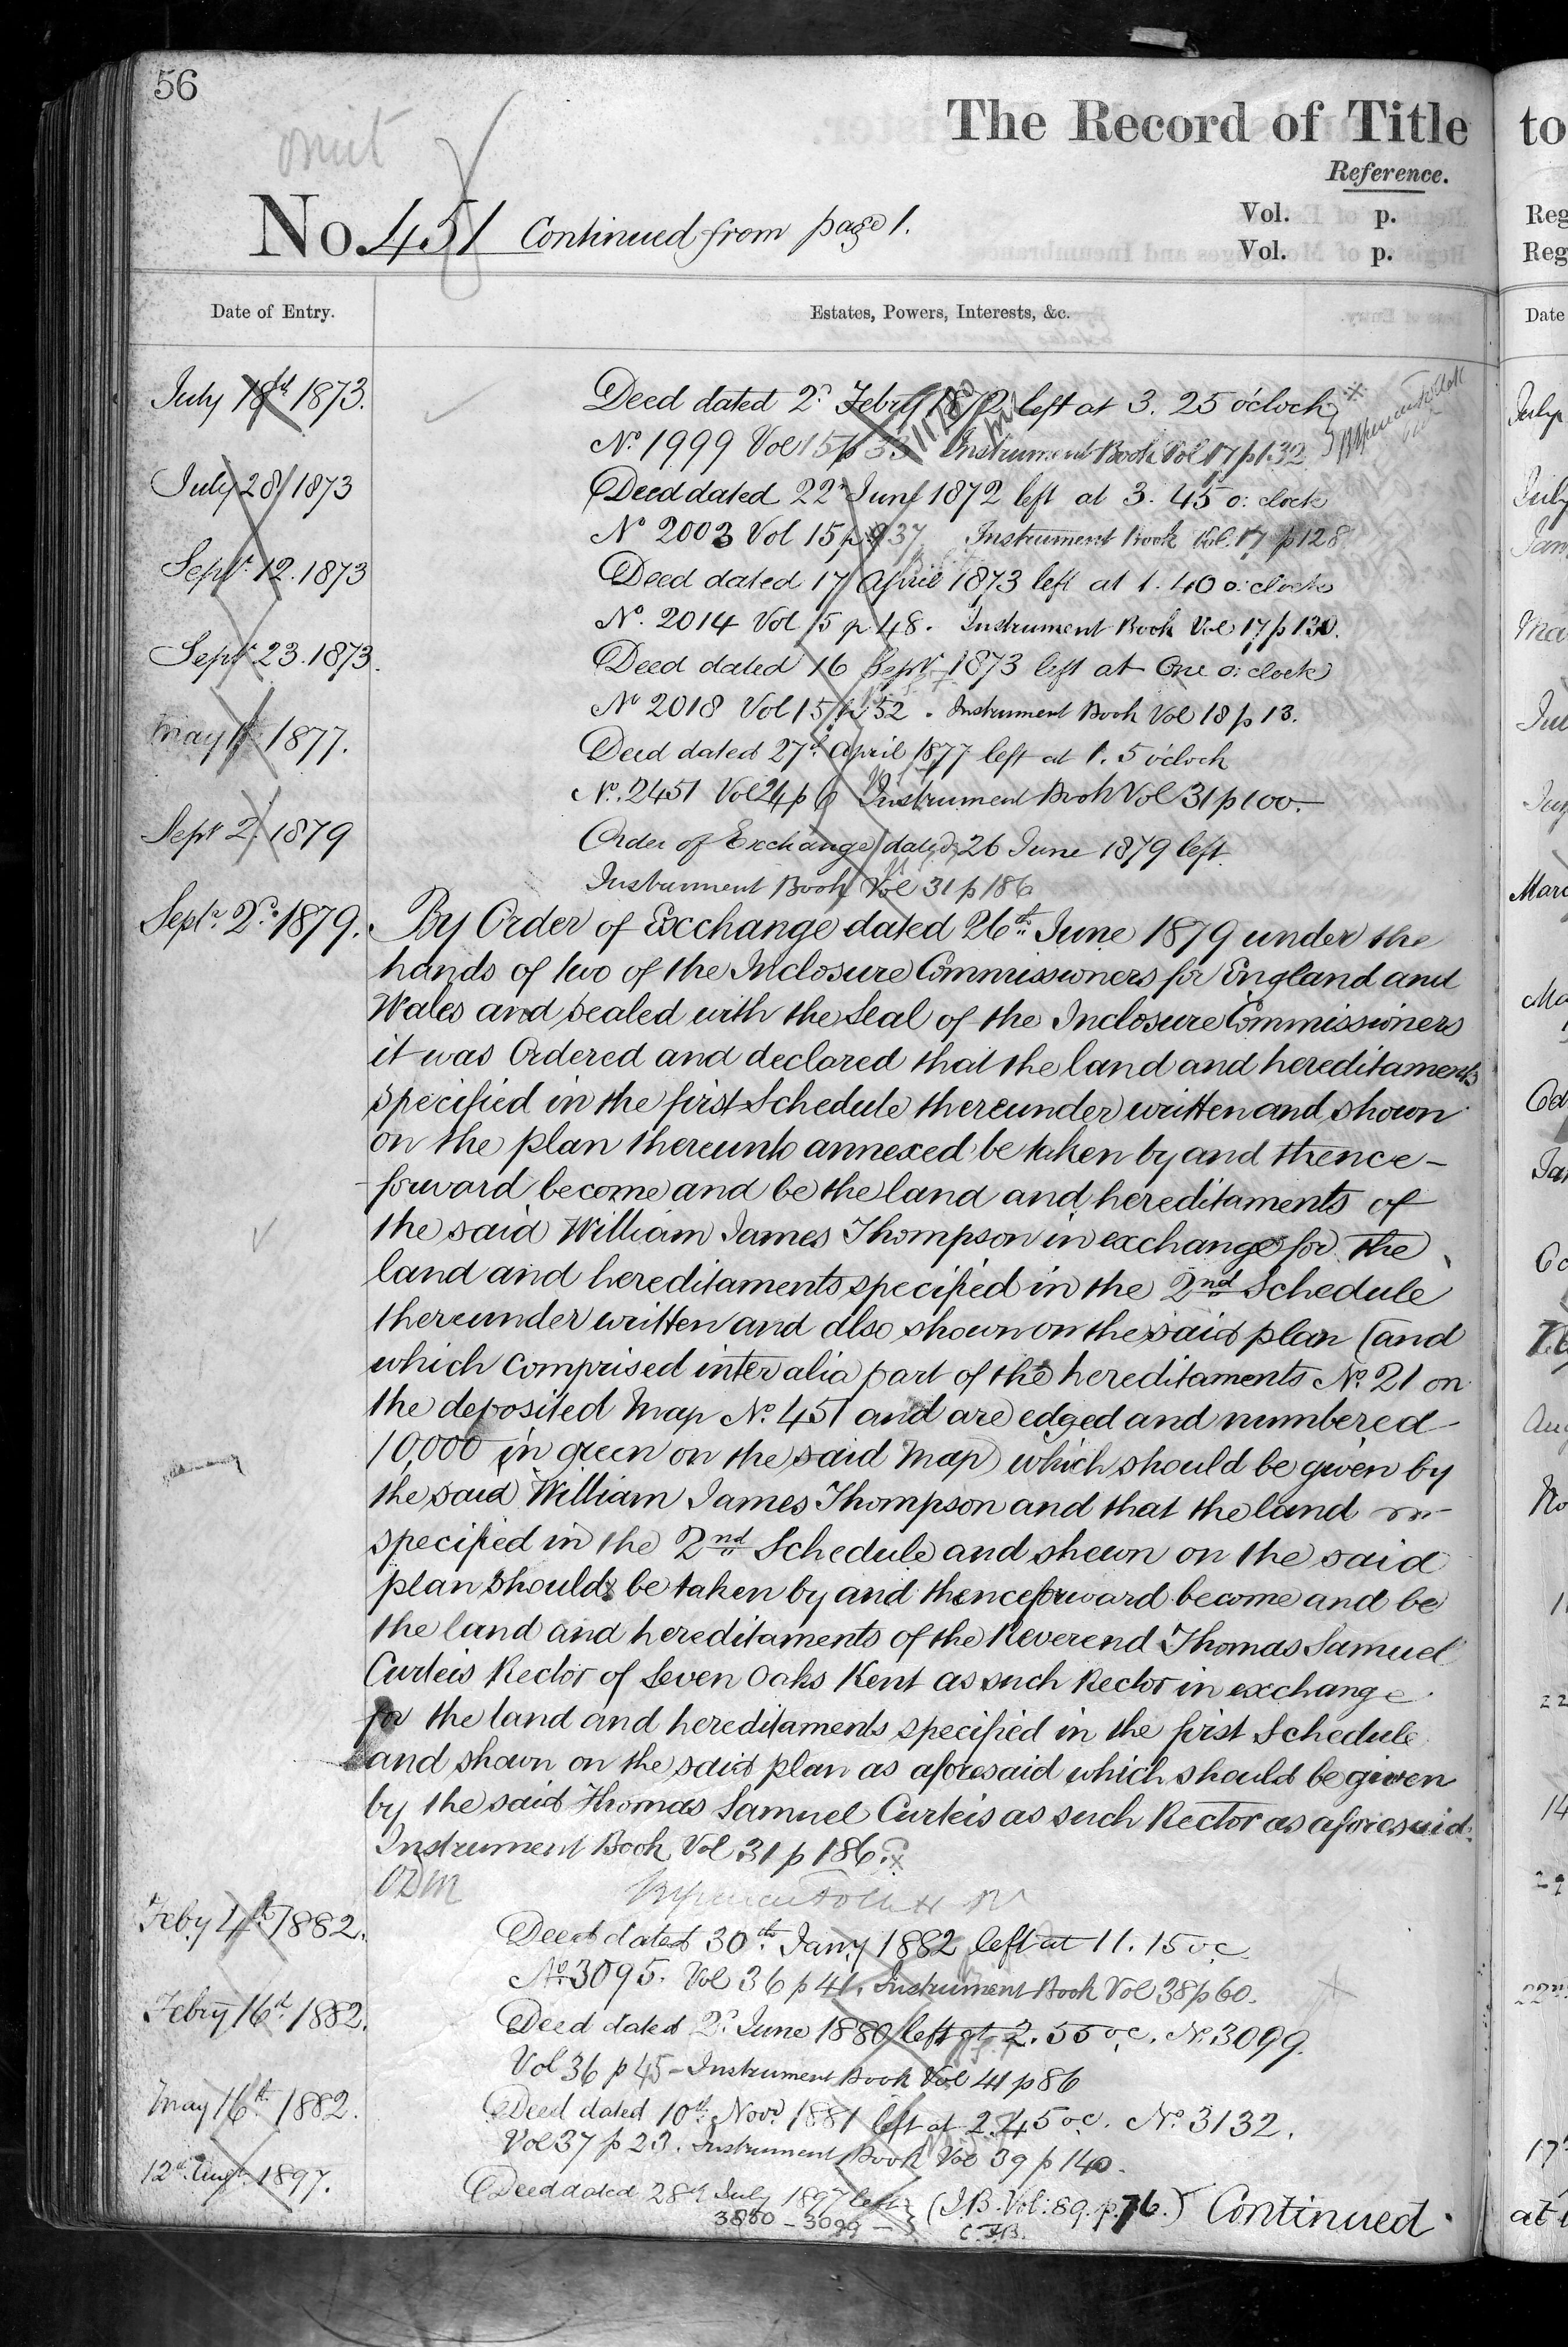 56
omit
The Record of Title
Reference.
No. 451 Continued from page 1.
Vol. p.
Vol. p.
Date of Entry.
Estates, Powers, Interests, &c.
July 18th 1873.
Deed dated 2d Febry 1872 left at 3. 25 o'clock
No. 1999 Vol 15 p 33 Instrument Book Vol 17 p 132
July 28 1873
Deed dated 22d June 1872 left at 3. 45 o: clock
No 2003 Vol 15 p 37 Instrument Book Vol. 17 p 128
Septr. 12. 1873
Deed dated 17 April 1873 left at 1. 40 o: clock
No. 2014 Vol 15 p 48. Instrument Book Vol 17 p 130.
Septr 23. 1873.
Deed dated 16 Septr 1873 left at One o: clock
No 2018 Vol 15 p 52. Instrument Book Vol 18 p 13.
May 1877.
Deed dated 27th April 1877 left at 1. 5 o'clock
No. 2451 Vol 24 p 6 Instrument Book Vol 31 p 100.
Septr 2. 1879
Order of Exchange dated 26 June 1879 left.
Instrument Book Vol 31 p 186
Septr. 2d. 1879.
By Order of Excchange dated 26th June 1879 under the
hands of two of the Inclosure Commissioners for England and
Wales and sealed with the Seal of the Inclosure Commissioners
it was Ordered and declared that the land and hereditaments
specified in the first Schedule thereunder written and shown
on the plan thereunto annexed be taken by and thence-
forward become and be the land and hereditaments of
the said William James Thompson in exchange for the
land and hereditaments specified in the 2nd Schedule
thereunder written and also shown on the said plan (and
which comprised inter alia part of the hereditaments No. 21 on
the deposited Map No. 451 and are edged and numbered
10,000 in green on the said Map) which should be given by
the said William James Thompson and that the land
specified in the 2nd Schedule and shewn on the said
plan should be taken by and thenceforward become and be
the land and hereditaments of the Reverend Thomas Samuel
Curteis Rector of Seven Oaks Kent as such Rector in exchange
for the land and hereditaments specified in the first Schedule
and shown on the said plan as aforesaid which should be given
by the said Thomas Samuel Curteis as such Rector as aforesaid.
Instrument Book Vol 31 p 186.
Feby 4th 1882.
Deed dated 30th. Jany 1882 left at 11. 15 oc
No. 3095. Vol 36 p 41. Instrument Book Vol 38 p 60.
Febry 16th 1882.
Deed dated 2d. June 1880 left at 2. 55 oc. No. 3099.
Vol 36 p 45 - Instrument Book Vol 41 p 86
May 16th 1882.
Deed dated 10th. Novr 1881 left at 2. 45 oc. No. 3132.
Vol 37 p 23. Instrument Book Vol 39 p 140.
12th Augt. 1897.
Deed dated 28th July 1897 left (I.B. Vol: 89. p. 76.) Continued.